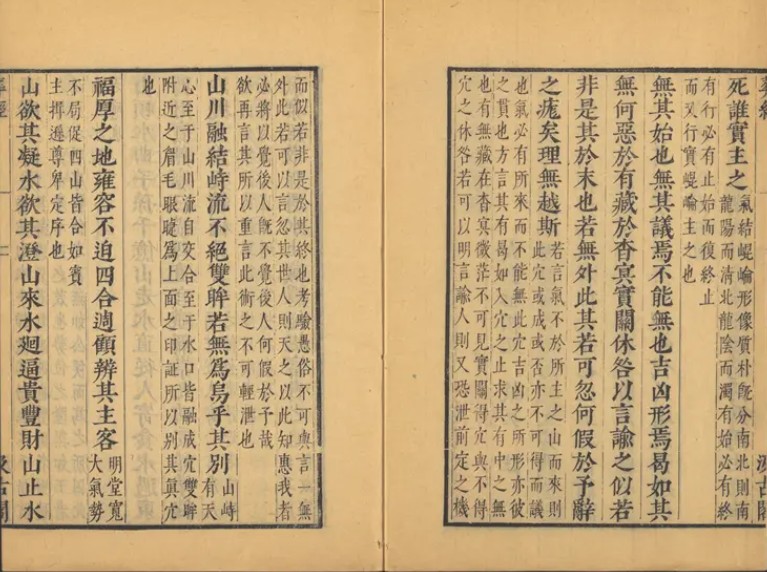 葬經
汲古閣
死誰實主之
氣結崐崘形像質朴旣分南北則南
龍陽而清北龍陰而濁有始必有終
有行必有止始而復終止
而又行實崐崘主之也
無其始也無其議焉不能無也吉凶形焉曷如其
無何惡於有藏於杳冥實關休咎以言諭之似若
非是其於末也若無外此其若可忽何假於予辭
之疣矣理無越斯
若言氣不於所主之山而來則
此穴或成或否亦不可得而議
也氣必有所來而不能無此穴吉凶之所形亦彼
之貫也方言其有曷如入穴之止求其有中之無
也有無藏在杳冥微茫不可見實關得穴與不得
穴之休咎若可以明言諭人則又恐泄前定之機
而似若非是於其終也考喻愚俗不可與言一無
外此若可以言忽其世人則天之以此知惠我者
必將以覺後人旣不覺後人何假於予哉
欲再言其所以重言此術之不可輕泄也
山川融結峙流不絕雙眸若無爲烏乎其別
山峙
有天
心至于山川流自交合至于水口皆融成穴雙眸
附近之眉毛眼睫爲上面之印証所以別其眞穴
也
福厚之地雍容不迫四合週顧辨其主客
明堂寬
大氣勢
不局促四山皆合如賓
主揖遜尊卑定序也
山欲其凝水欲其澄山來水廻逼貴豐財山止水
葬經
汲古閣